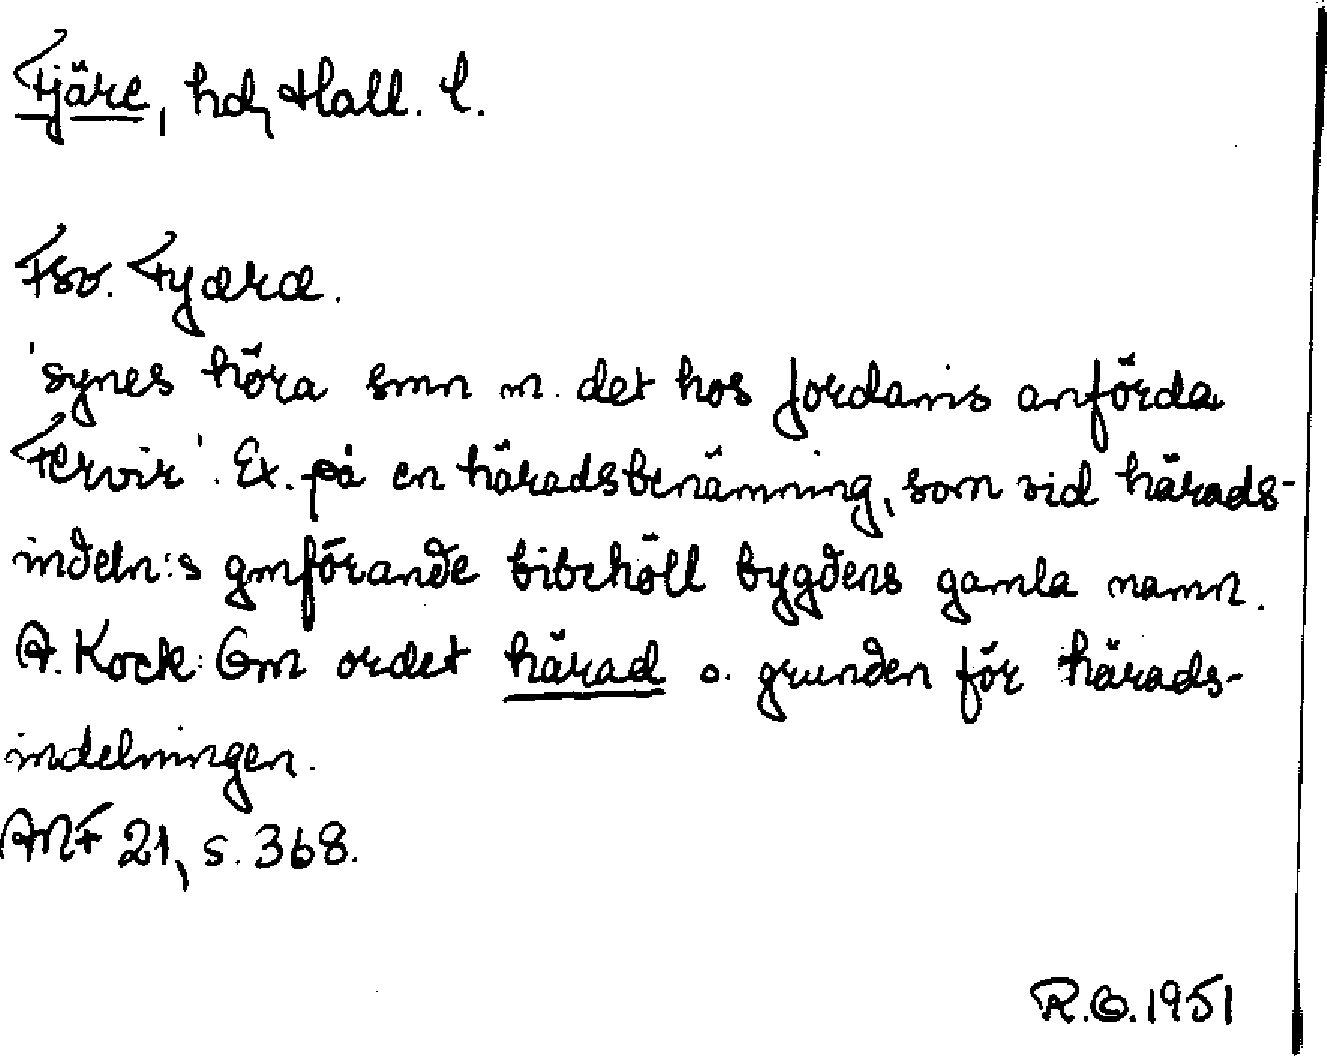 Fjäre, hd, Hall. l.
Fsv. Fyæræ.
'synes höra smn m. det hos Jordanis anförda
Fervir'. Ex. på en häradsbenämning, som vid härads-
indeln:s gmförande bibehöll bygdens gamla namn.
A. Kock: Om ordet härad o. grunden för härads-
indelningen.
ANF 21, s. 368.
R.O. 1951